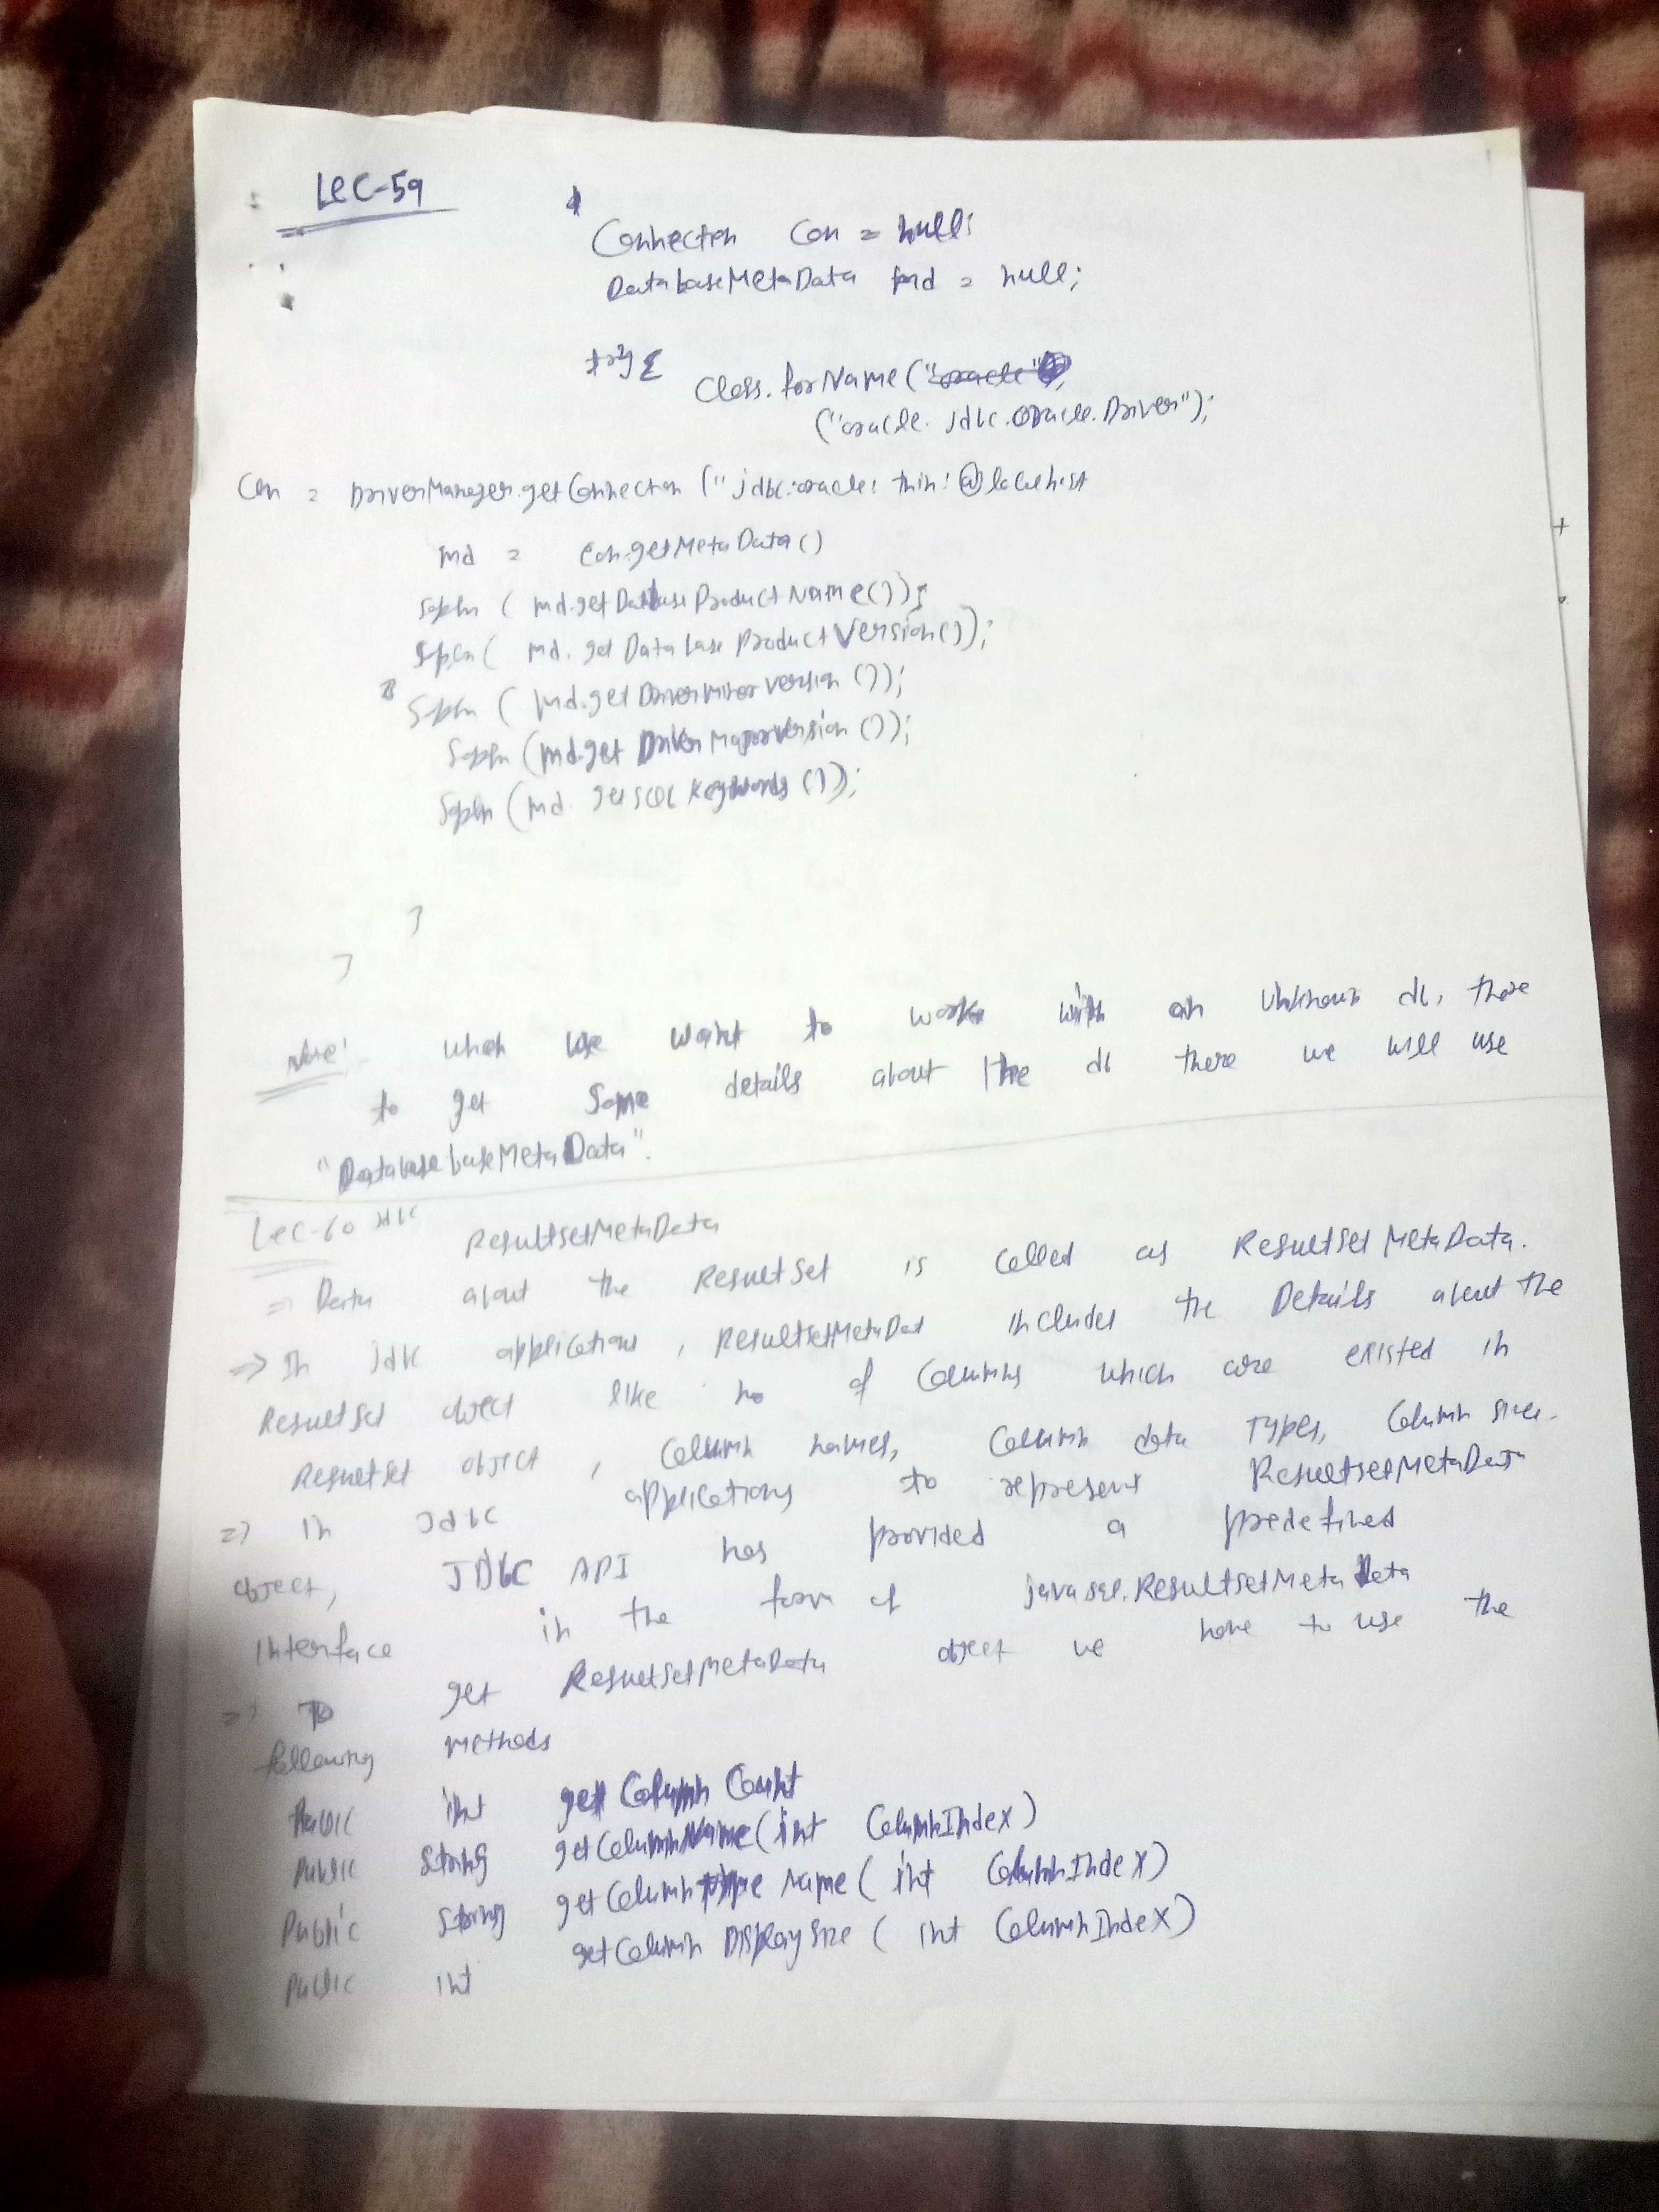 Lec-59
Connection con = null;
DatabaseMetaData md = null;
try {
Class.forName(
("oracle.jdbc.oracle.Driver");
Con = DriverManager.getConnection ("jdbc:oracle:thin:@localhost
md = con.getMetaData()
Sopln ( md.getDatabaseProductName());
Sopln ( md.getDatabaseProductVersion());
Sopln ( md.getDriverMinorVersion ());
Sopln (md.getDriverMajorVersion ());
Sopln (md.getSQLKeywords ());
}
}
Note:- when we want to work with an unknown db, there
to get some details about the db there we will use
"DatabasebaseMetaData".
Lec-60 Jdbc
ResultsetMetaData
=> Data about the ResultSet is called as ResultSetMetaData.
=> In jdbc applications, ResultsetMetaDat includes the Details about the
ResultSet object like no of Columns which are existed in
ResultSet object, Column names, Column data types, Column sizes.
=> In Jdbc applications to represent ResultsetMetaData
object, JDbC API has provided a predefined
Interface in the form of java.sql.ResultsetMetaData
=> To get ResultSetMetaData object we have to use the
following methods
Public int get Column Count
Public String getColumnName(int ColumnIndex)
Public String getColumnType Name ( int ColumnIndex)
Public int getColumn DisplaySize ( int ColumnIndex)